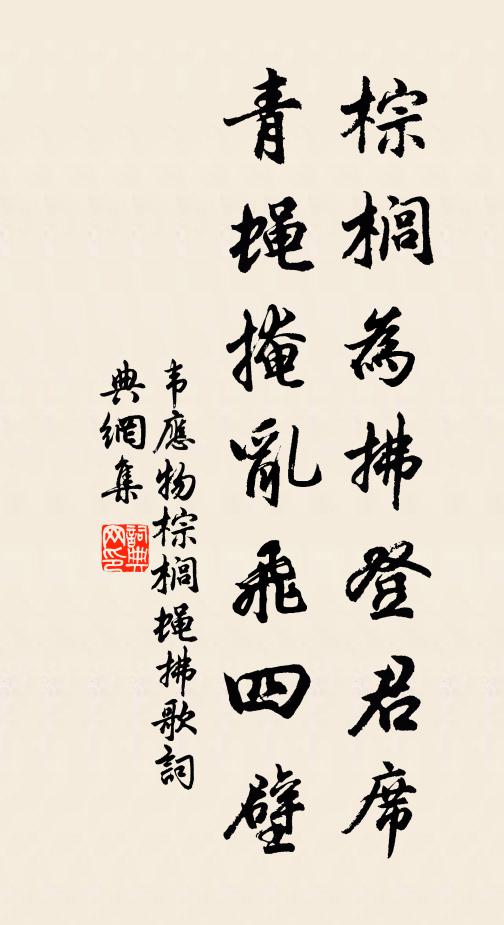 棕榈為拂登君席
青蝇掩亂飛四壁
韦應物棕榈蝇拂歌詞
典網集
詞典網印